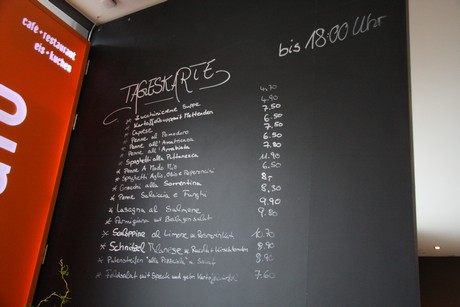 café • restaurant
eis • kuchen
bis 18:00 Uhr
TAGESKARTE
Zucchinicreme Suppe 4.70
Kartoffelsuppe mit Mettenden 4.90
Caprese 7.50
Penne al Pomodoro 6.50
Penne all' Amatriciana 7.50
Penne all' Arrabiata 6.50
Spaghetti alla Puttanesca 7.50
Penne A Modo Mio 11.90
Spaghetti Aglio, Olio e Peperoncini 6.50
Gnocchi alla Sorrentina 8,-
Penne Salsiccia e Funghi 8.30
Lasagna al Salmone 9.90
Parmigiana mit Beilagensalat 9.80
Scaloppine al Limone 10.70
Schnitzel 8.90
Putenstreifen "alla Pizzaiola" 8.90
Feldsalat mit Speck und 7.60